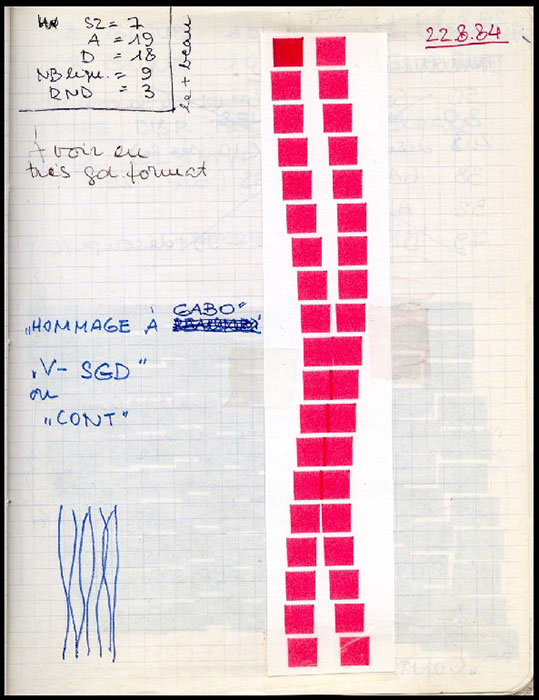 SZ = 7
A = 19
D = 18
NB lign. = 9
RND = 3
le + beau
22.8.84
à voir en
très gd. format
„HOMMAGE À GABO"
„V- SGD"
ou
„CONT"